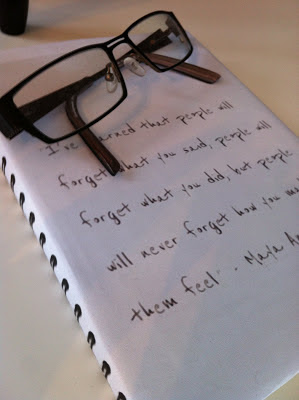 "I've learned that people will
forget what you said, people will
forget what you did, but people
will never forget how you
them feel" - Maya